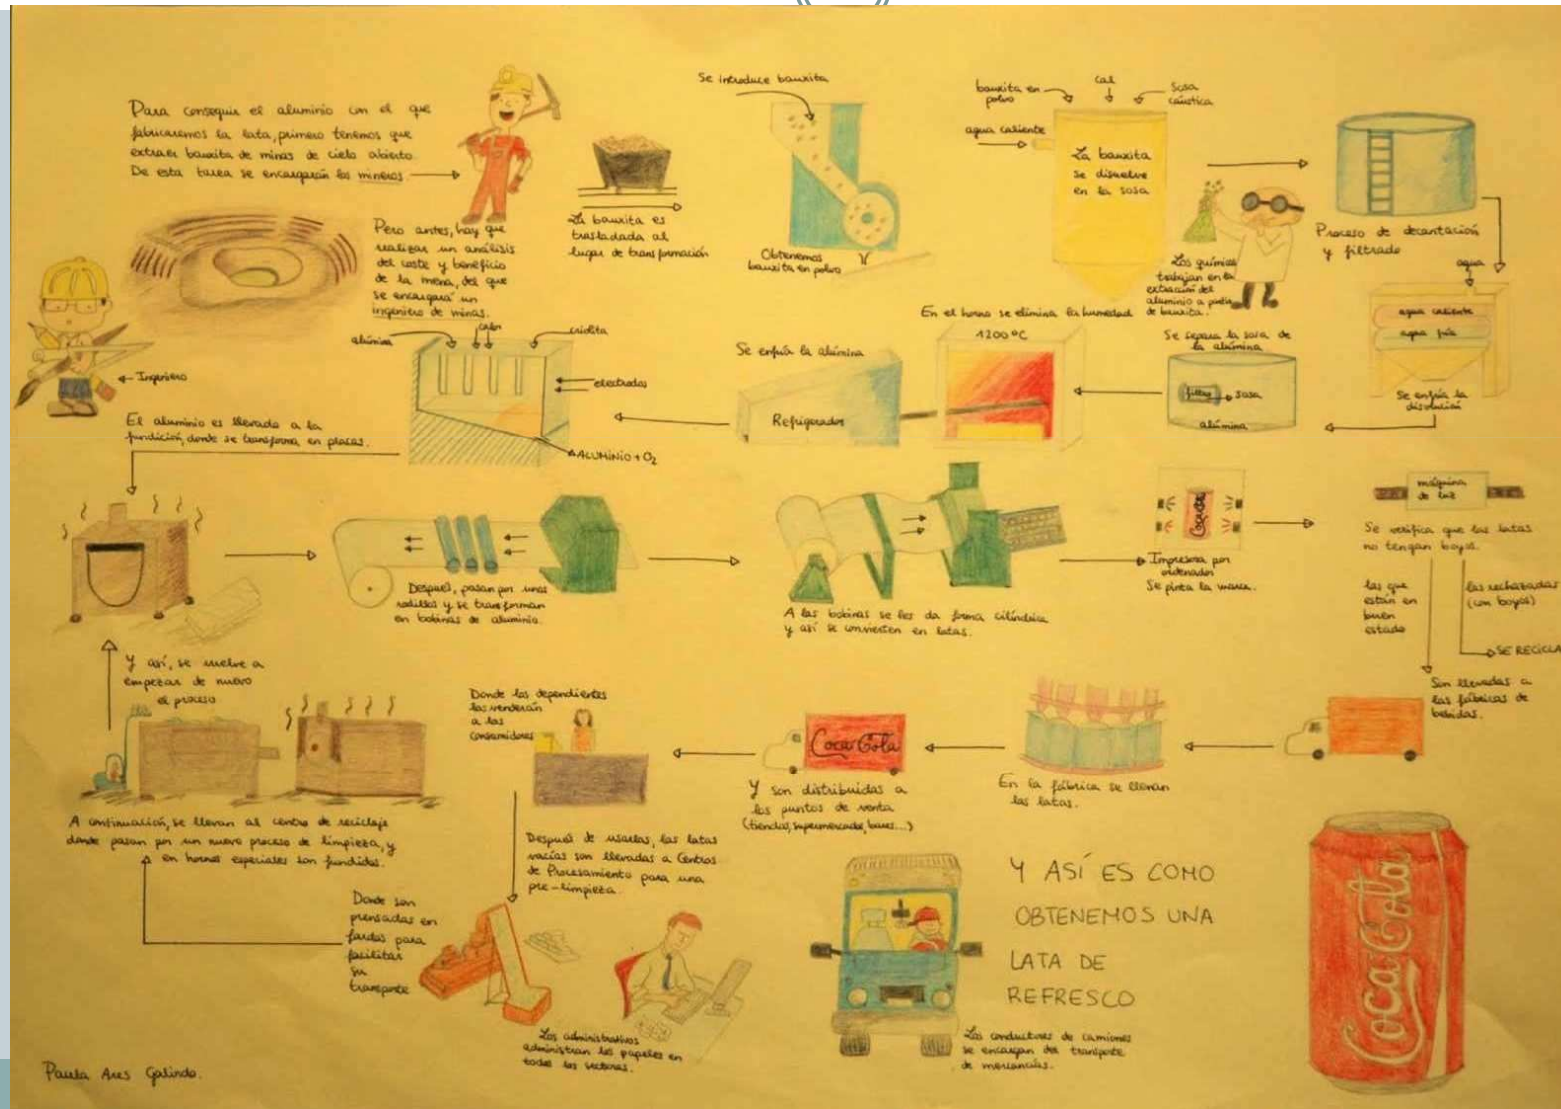 Para conseguir el aluminio con el que
fabricaremos la lata, primero tenemos que
extraer bauxita de minas de cielo abierto.
De esta tarea se encargarán los mineros
Pero antes, hay que
realizar un análisis
del coste y beneficio
de la mena, del que
se encargará un
ingeniero de minas.
← Ingeniero
La bauxita es
trasladada al
lugar de transformación
Se introduce bauxita
Obtenemos
bauxita en polvo
bauxita en
polvo
cal
Sosa
caústica
agua caliente
La bauxita
se disuelve
en la sosa
Los químicos
trabajan en la
extracción del
aluminio a partir
de bauxita.
Proceso de decantación
y filtrado
agua
agua caliente
agua fría
Se enfría la
disolución
Se separa la sosa de
la alúmina
filtro
sosa
alúmina
En el horno se elimina la humedad
1200ºC
Se enfría la alúmina
Refrigerador
alúmina
criolita
electrodos
ALUMINIO + O2
El aluminio es llevado a la
fundición, donde se transforma en placas.
Después, pasan por unos
rodillos y se transforman
en bobinas de aluminio.
A las bobinas se les da forma cilíndrica
y así se convierten en latas.
Impresora por
ordenador
Se pinta la marca.
máquina
de luz
Se verifica que las latas
no tengan boyos.
las que
están en
buen
estado
las rechazadas
(con boyos)
SE RECICLA
Son llevadas a
las fábricas de
bebidas.
En la fábrica se llenan
las latas.
Coca Cola
Y son distribuidas a
los puntos de venta
(tiendas, supermercados, bares...)
Donde los dependientes
las venderán
a los
consumidores
Después de usarlas, las latas
vacías son llevadas a Centros
de Procesamiento para una
pre-limpieza.
Donde son
prensadas en
fardos para
facilitar
su
transporte
A continuación, se llevan al centro de reciclaje
donde pasan por un nuevo proceso de limpieza, y
en hornos especiales son fundidas.
Y así, se vuelve a
empezar de nuevo
el proceso
Los administrativos
administran los papeles en
todos los sectores.
Los conductores de camiones
se encargan del transporte
de mercancías.
Y ASÍ ES COMO
OBTENEMOS UNA
LATA DE
REFRESCO
Coca Cola
Paula Ares Galindo.